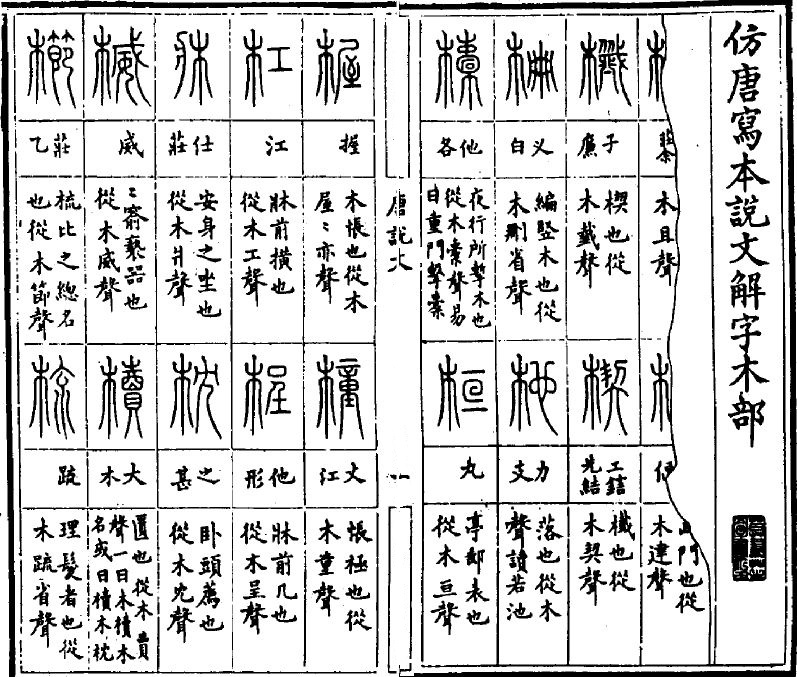 仿唐寫本說文解字木部
木且聲
門也從
木建聲
櫼
子廉
楔也從
木韱聲
楔
工鎋
先結
櫼也從
木契聲
柵
叉白
編竪木也從
木刪省聲
杝
力支
落也從木
聲讀若池
㯱
他各
夜行所擊木也
從木橐聲易
曰重門擊㯱
桓
丸
亭郵表也
從木亘聲
唐說文
一
楃
握
木帳也從木
屋〻亦聲
橦
丈江
帳極也從
木童聲
杠
江
牀前橫也
從木工聲
桯
他形
牀前几也
從木呈聲
牀
仕莊
安身之坐也
從木爿聲
枕
之甚
卧頭薦也
從木冘聲
楲
威
〻窬褻器也
從木威聲
櫝
大木
匱也從木賣
聲一曰木櫝木
名或曰櫝木枕
櫛
莊乙
梳比之總名
也從木節聲
梳
疏
理髮者也從
木疏省聲